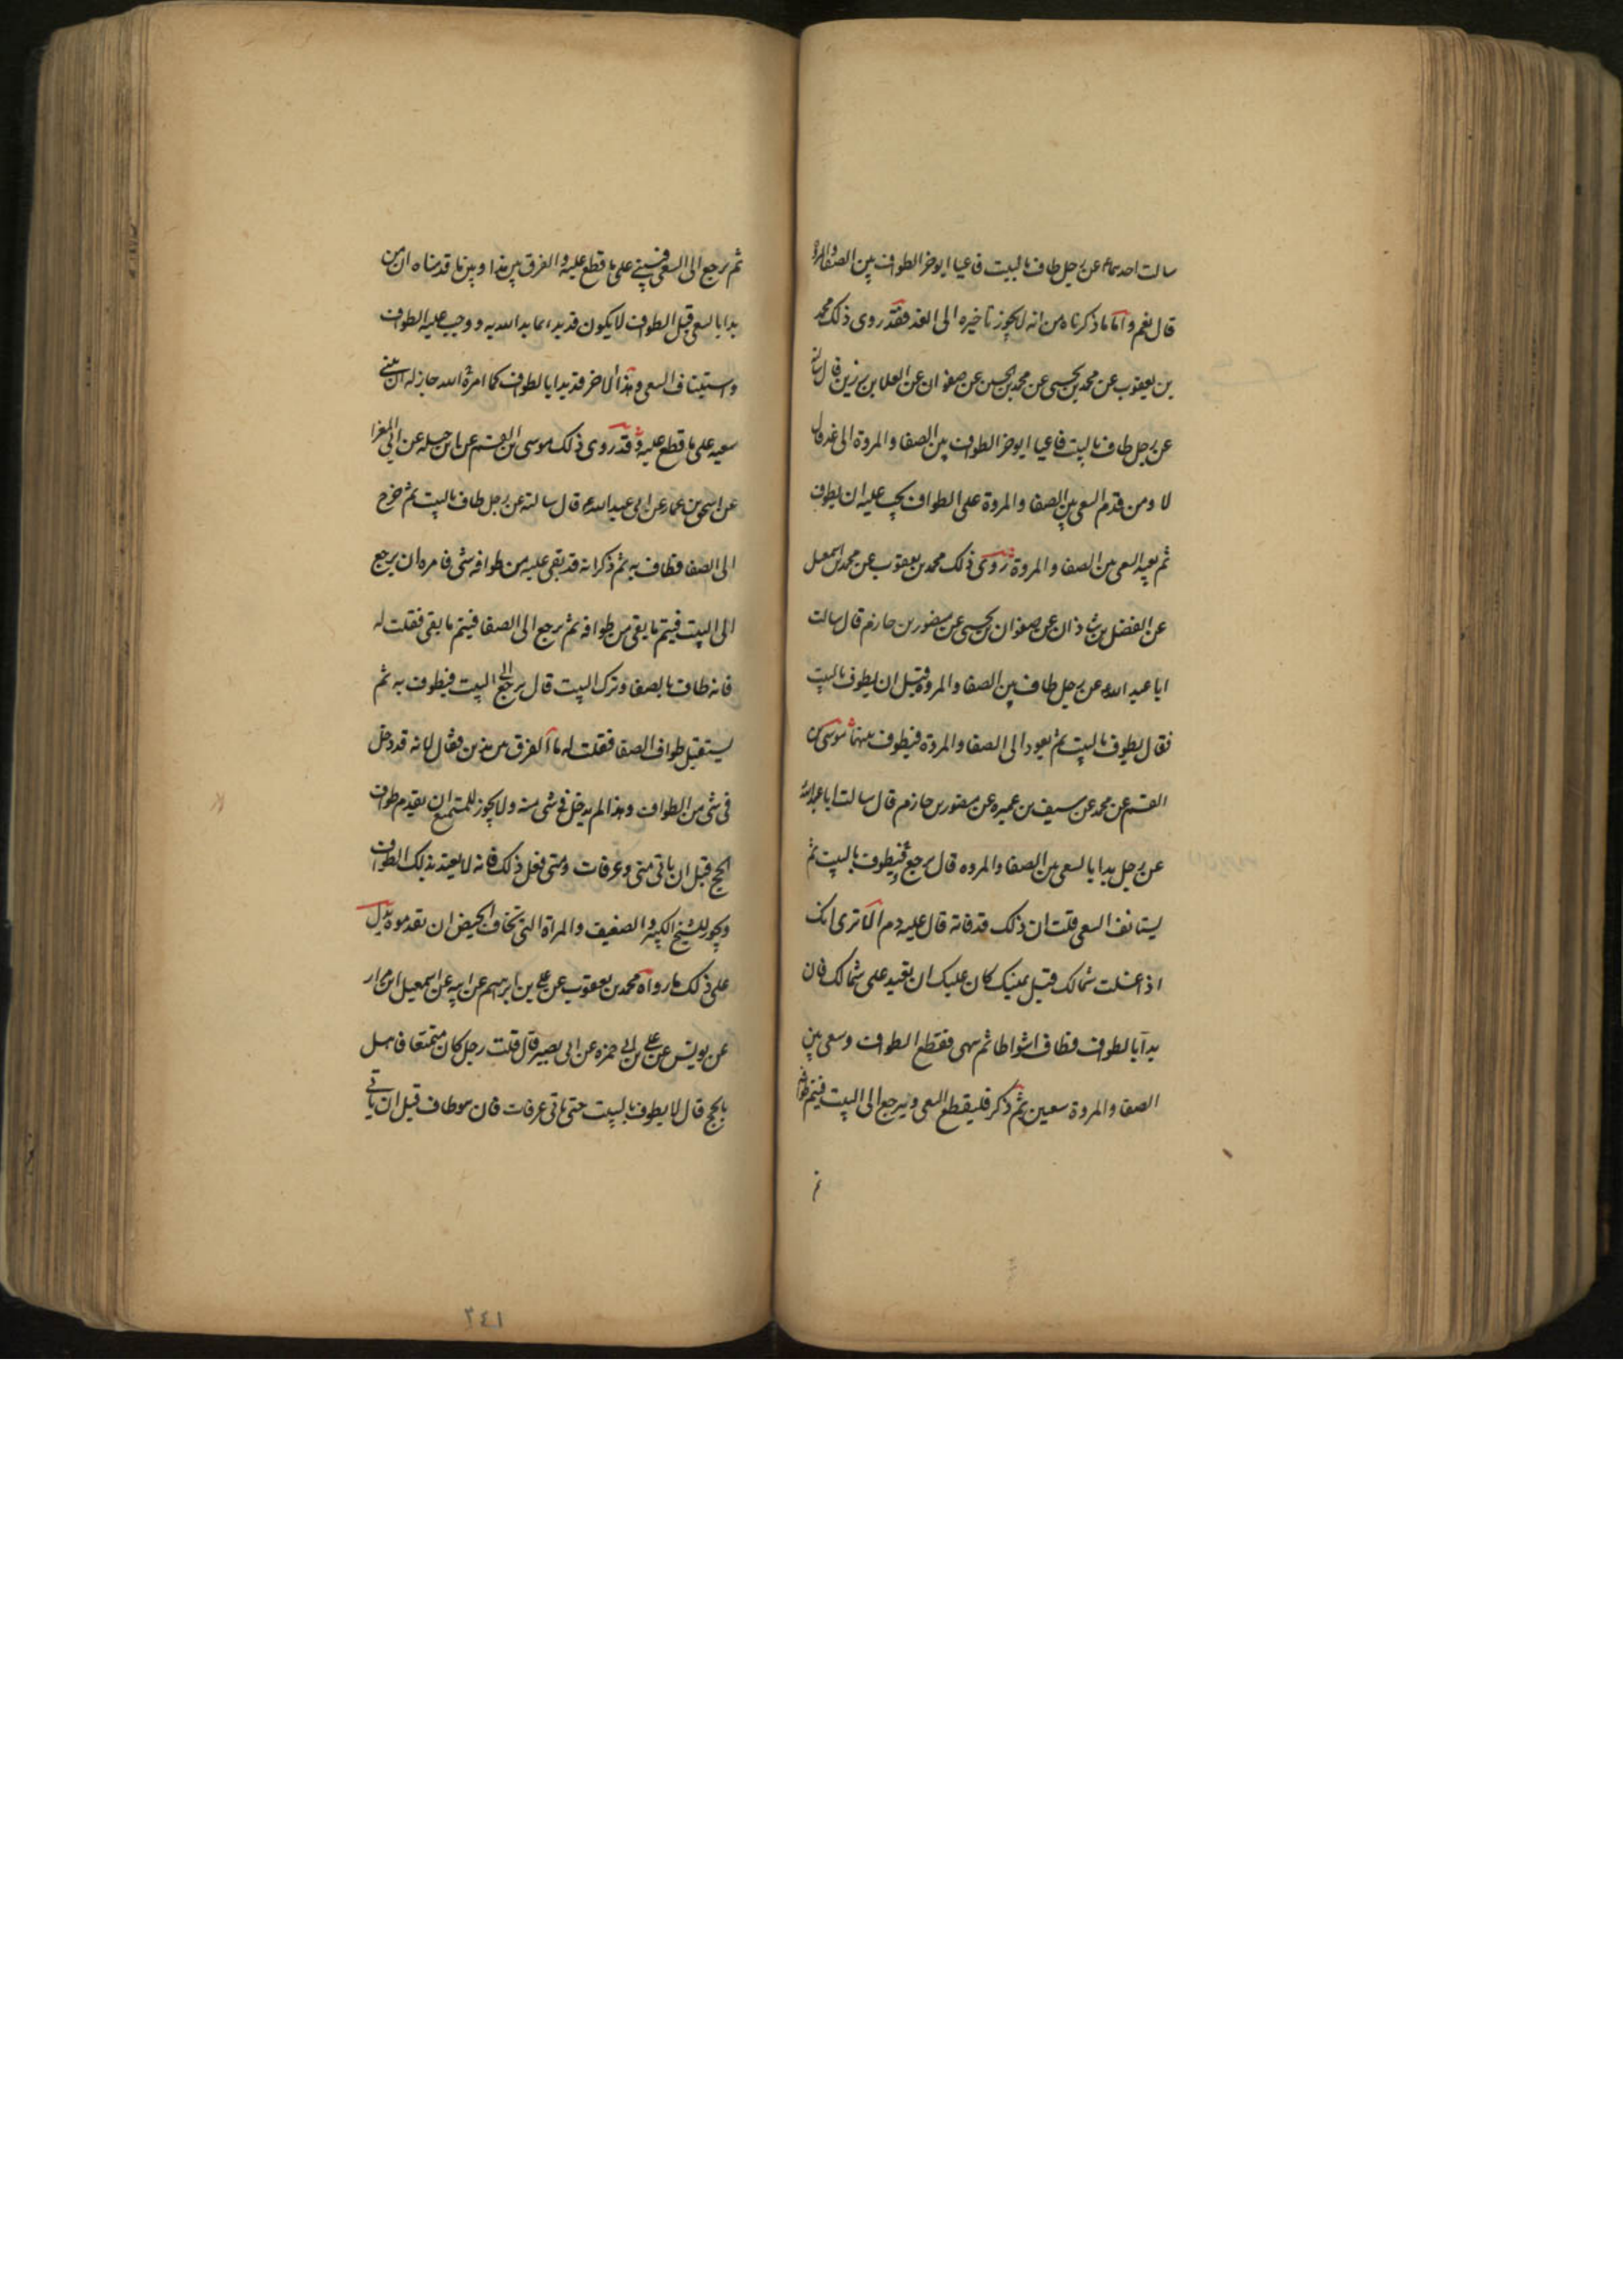 سالت احدهما ع عن رجل طاف بالبيت فاعيا ايوخر الطواف بين الصفا والمروة
قال نعم واما ما ذكرناه من انه لا يجوز تاخيره الى الغد فقد روى ذلك محمد
بن يعقوب عن محمد بن يحيى عن محمد بن الحسين عن صفوان عن العلا بن رزين قال سالته
عن رجل طاف بالبيت فاعيا ايوخر الطواف بين الصفا والمروة الى غد قال
لا ومن قدم السعى بين الصفا والمروة على الطواف يجب عليه ان يطوف
ثم يعيد السعى بين الصفا والمروة روى ذلك محمد بن يعقوب عن محمد بن اسمعيل
عن الفضل بن شاذان عن صفوان بن يحيى عن منصور بن حازم قال سالت
ابا عبد الله عن رجل طاف بين الصفا والمروة قبل ان يطوف بالبيت
فقال يطوف بالبيت ثم يعود الى الصفا والمروة فيطوف بينهما موسى بن
القسم عن محمد عن سيف بن عميره عن منصور بن حازم قال سالت ابا عبد الله
عن رجل بدا بالسعى بين الصفا والمروه قال يرجع فيطوف بالبيت ثم
يستانف السعى قلت ان ذلك قد فاته قال عليه دم الا ترى انك
اذا غسلت شمالك قبل يمينك كان عليك ان تعيد على شمالك فان
بدا بالطواف فطاف اشواطا ثم سهى فقطع الطواف وسعى بين
الصفا والمروة سعين ثم ذكر فليقطع السعى وليرجع الى البيت فيتم طوافه
ثم
ثم يرجع الى السعى فيبنى على ما قطع عليه والفرق بين هذا وبين ما قدمناه ان من
بدا بالسعى قبل الطواف لا يكون قد بدا بما بدا الله به ووجب عليه الطواف
واستيناف السعى وهذا الاخر قد بدا بالطواف كما امره الله جاز له ان يبنى
سعيه على ما قطع عليه وقد روى ذلك موسى بن القسم عن ابن جبله عن ابى المغرا
عن اسحق بن عمار عن ابى عبد الله ع قال سالته عن رجل طاف بالبيت ثم خرج
الى الصفا فطاف به ثم ذكر انه قد بقى عليه من طوافه شى فامره ان يرجع
الى البيت فيتم ما بقى من طوافه ثم يرجع الى الصفا فيتم ما بقى فقلت له
فانه طاف بالصفا وترك البيت قال يرجع الى البيت فيطوف به ثم
يستقبل طواف الصفا فقلت له ما الفرق بين هذين فقال لانه قد دخل
فى شى من الطواف وهذا لم يدخل فى شى منه ولا يجوز للمتمتع ان يقدم طواف
الحج قبل ان ياتى منى وعرفات ومتى فعل ذلك فانه لا يعتد بذلك الطواف
ويجوز للشيخ الكبير والضعيف والمراة التى تخاف الحيض ان تقدموه يدل
على ذلك ما رواه محمد بن يعقوب عن على بن ابرهيم عن ابيه عن اسمعيل بن مرار
عن يونس عن على بن ابى حمزه عن ابى بصير قال قلت رجل كان متمتعا فاهل
بالحج قال لا يطوف بالبيت حتى ياتى عرفات فان هو طاف قبل ان ياتى
٣٤١